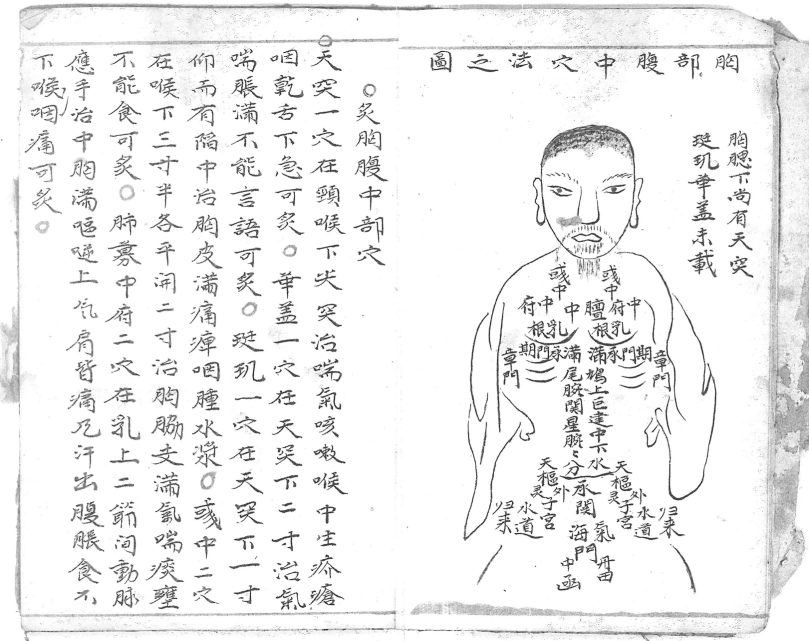 胸部腹中穴法之圖
胸腮下尚有天突
琁玑華盖未載
彧中
彧中
中府
中府
膻中
乳根
乳根
期門
期門
承滿
承滿
章門
章門
鳩尾
上脘
巨闕
建
中脘
下
水分
天樞
天樞
外
外
子宮
子宮
水道
水道
归来
归来
氣海
丹田
関門
中
○灸胸腹中部穴
○天突一穴在頸喉下尖突治喘氣咳嗽喉中生疥瘡
咽乾舌下急可灸○華盖一穴在天突下二寸治氣
喘脹滿不能言語可灸○琁玑一穴在天突下一寸
仰而有陷中治胸皮滿痛痺咽腫水漿○彧中二穴
在喉下三寸半各平開二寸治胸脇支滿氣喘痰壅
不能食可灸○肺募中府二穴在乳上二筋间動脉
應手治中胸滿嘔逆上气肩背痛乃汗出腹脹食不
下喉咽痛可灸○